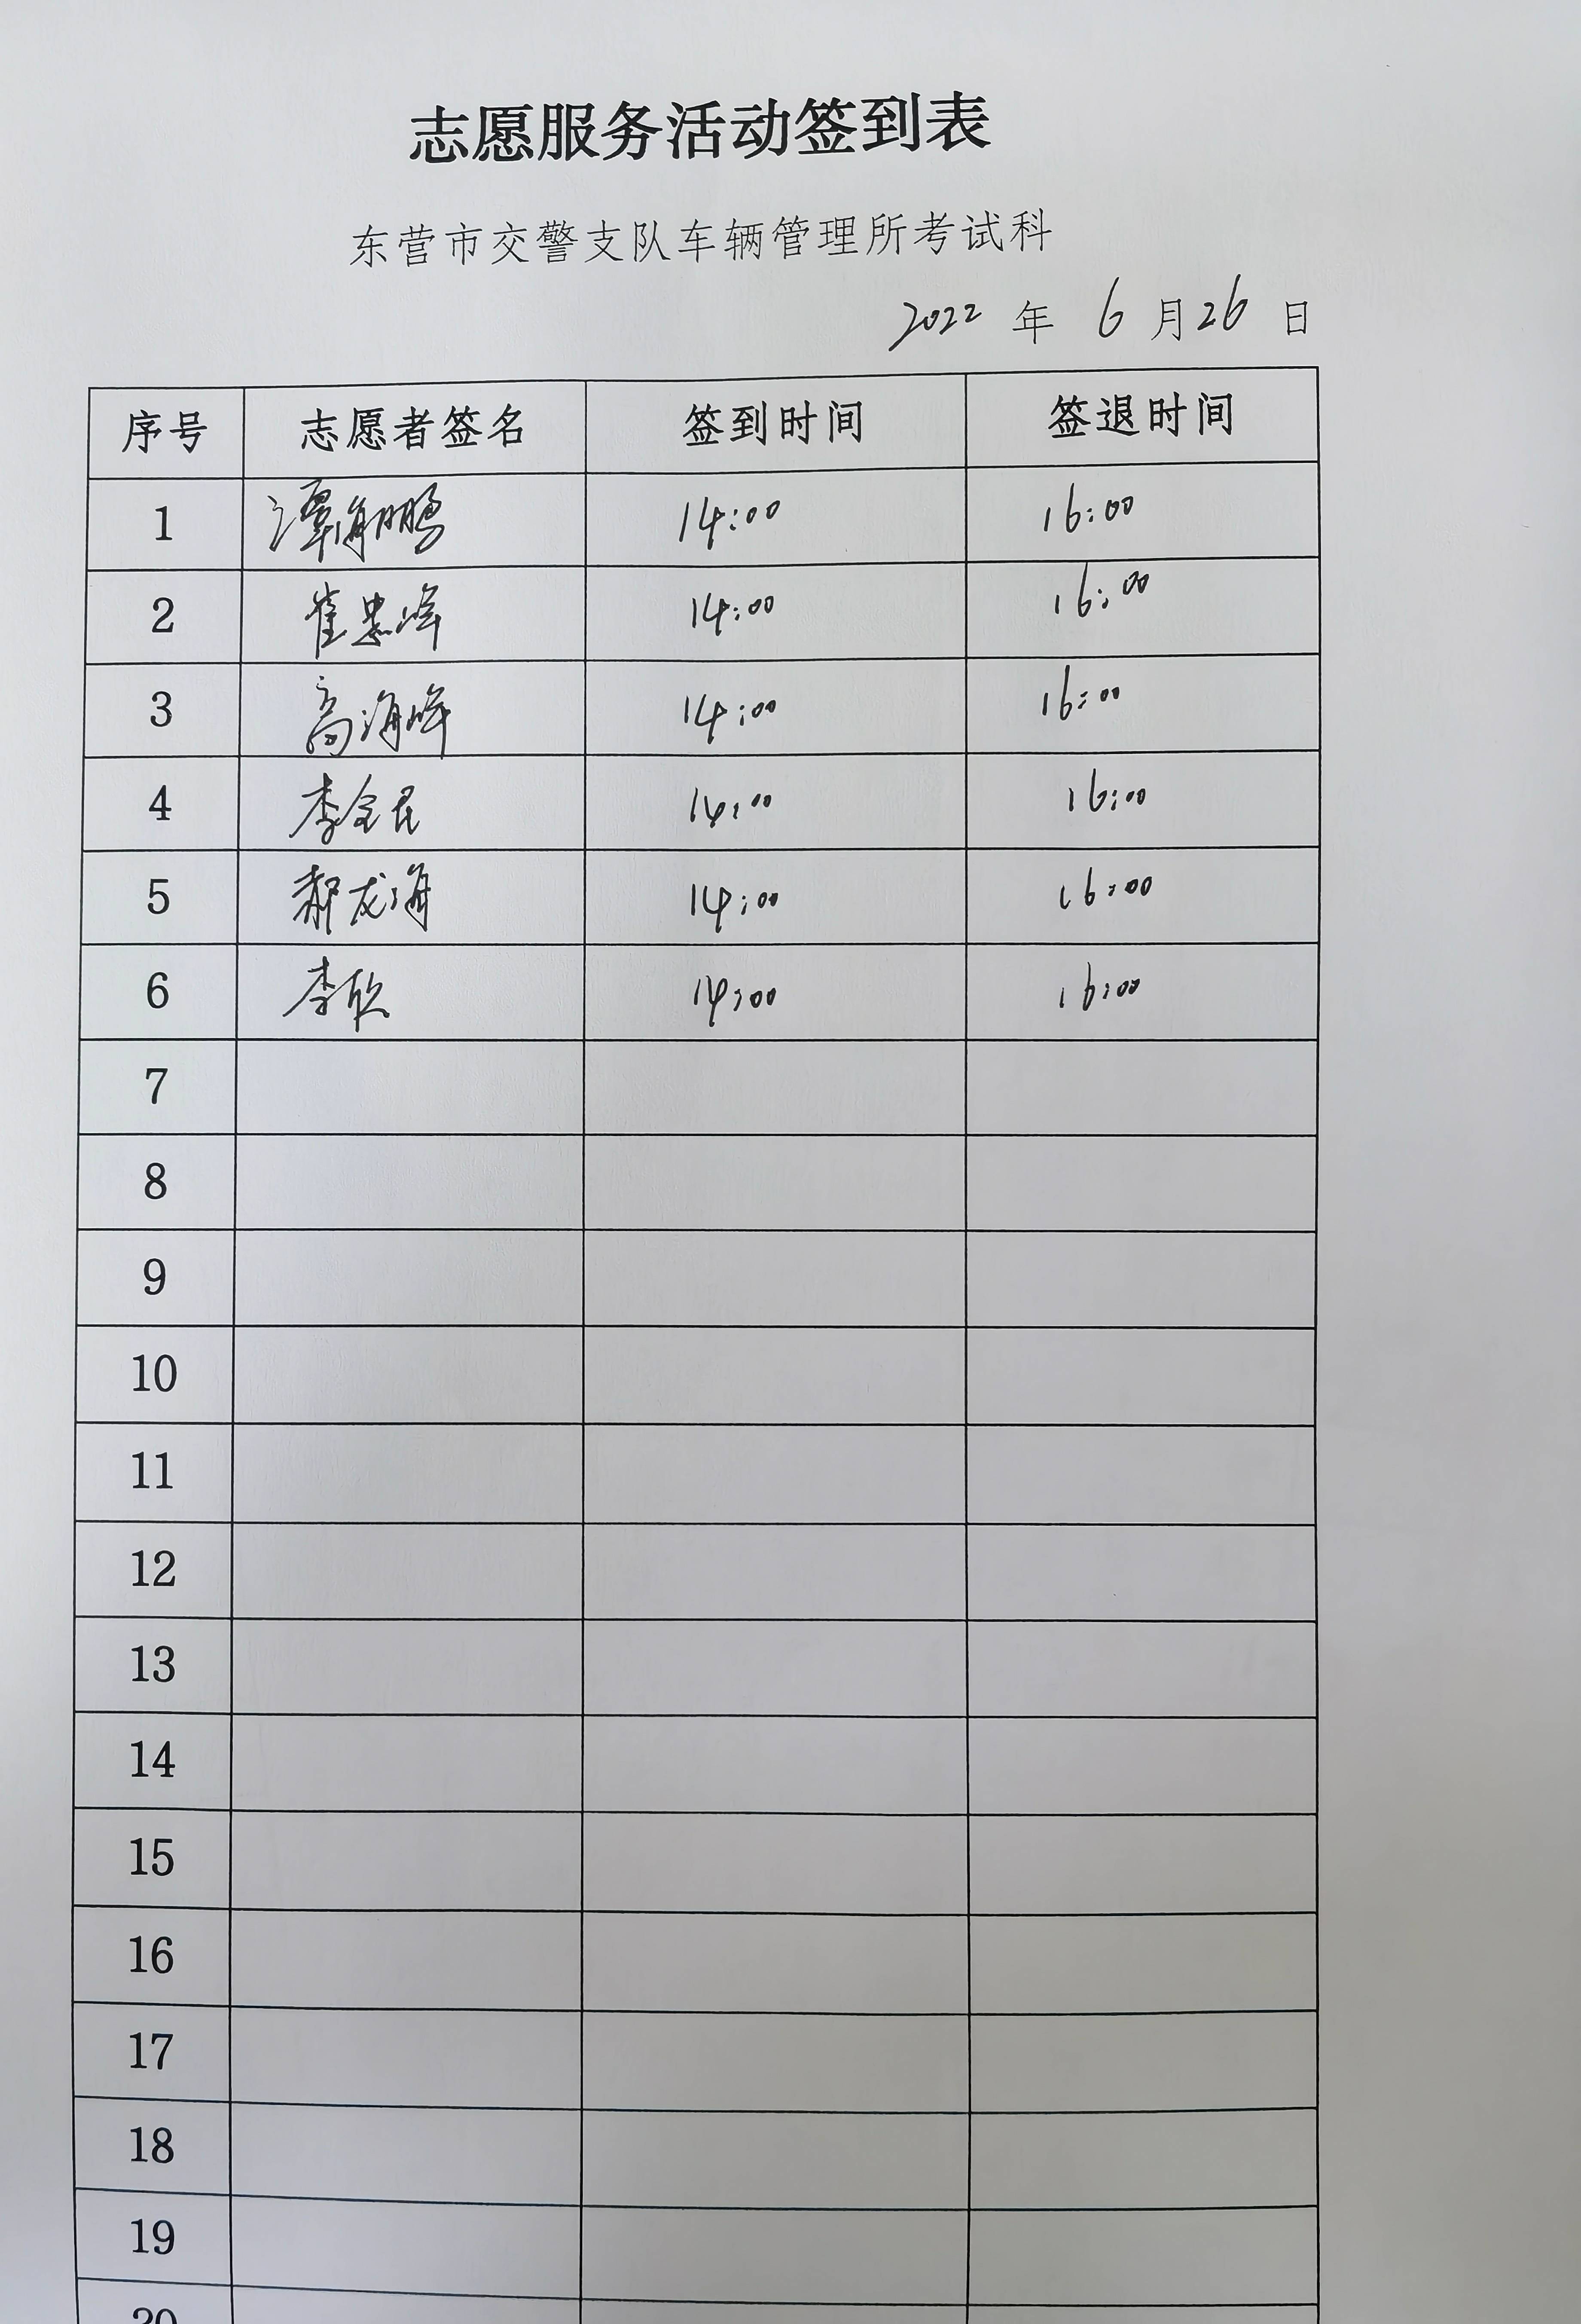 志愿服务活动签到表
东营市交警支队车辆管理所考试科
2022 年 6 月 26 日
序号 志愿者签名 签到时间 签退时间
1 谭海鹏 14:00 16:00
2 崔忠峰 14:00 16:00
3 高海峰 14:00 16:00
4 李金昆 14:00 16:00
5 郝龙海 14:00 16:00
6 李欣 14:00 16:00
7
8
9
10
11
12
13
14
15
16
17
18
19
20